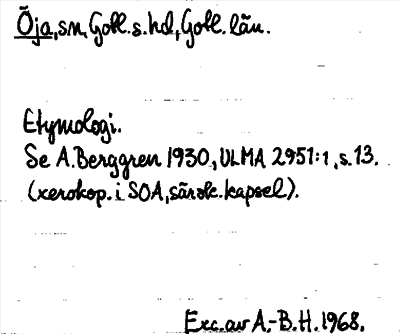 Öja, sn, Gotl. s. hd, Gotl. län.
Etymologi.
Se A. Berggren 1930, ULMA 2951:1, s. 13.
(xerokop. i SOA, särsk. kapsel).
Exc. av A.-B. H. 1968.